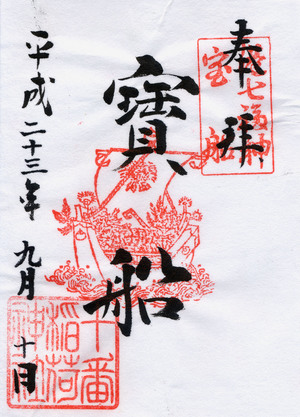 奉拝
七福神
宝船
寶船
平成二十三年九月十日
十番
稲荷
神社